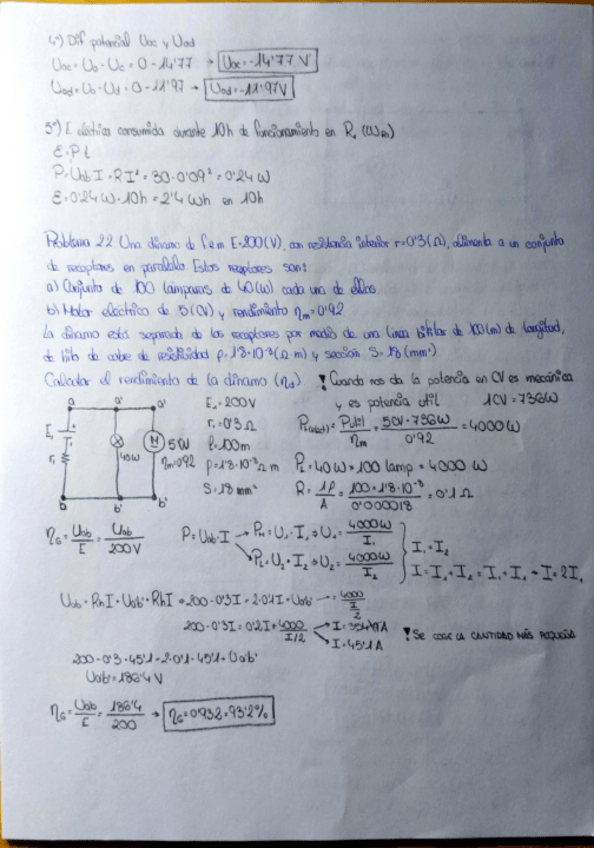 4º) Dif potencial Uac y Uad
Uac = Ua - Uc = 0 - 14'77 → Uac = -14'77 V
Uad = Ua - Ud = 0 - 11'97 → Uad = -11'97 V
5º) E eléctrica consumida durante 10h de funcionamiento en R1 (WR1)
E = P·t
P = Uab·I = R·I² = 30·0'09² = 0'24 W
E = 0'24 W·10h = 2'4 Wh en 10h
Problema 22 Una dinamo de fem E=200(V), con resistencia interior r=0'3(Ω), alimenta a un conjunto
de receptores en paralelo Estos receptores son:
a) Conjunto de 100 lámparas de 40(W) cada una de ellas
b) Motor eléctrico de 5(CV) y rendimiento ηm=0'92
La dinamo está separada de los receptores por medio de una línea bifilar de 100(m) de longitud,
de hilo de cobre de resistividad ρ=1'8·10⁻⁸(Ω·m) y sección S=18(mm²)
Calcular el rendimiento de la dinamo (ηd) ! Cuando nos da la potencia en CV es mecánica
y es potencia útil 1CV = 736W
a a' a'
E1 r1 40W M ηm=0'92
b b' b'
E1 = 200V
r1 = 0'3 Ω
l = 100m
ρ = 1'8·10⁻⁸ Ω m
S = 18 mm²
= Pútil/ηm = 5CV·736W/0'92 = 4000W
PL = 40W × 100 lamp = 4000 W
R = lρ/A = 100·1'8·10⁻⁸/0'000018 = 0'1Ω
ηG = Uab/E = Uab/200V
P = Uab·I → PM = U1·I1 → U1 = 4000W/I1
→ PL = U2·I2 → U2 = 4000W/I2
I1 = I2
I = I1 + I2 = I1 + I1 → I = 2I1
200 - 0'3I = 2·0'1I + Ua'b' → = 4000/(I/2)
200 - 0'3I = 0'2I + 4000/(I/2)
I = 45'1A
! SE COGE LA CANTIDAD MÁS PEQUEÑA
200 - 0'3·45'1 = 2·0'1·45'1 + Ua'b'
= 186'4 V
ηG = Uab/E = 186'4/200 → ηG = 0'932 = 93'2%